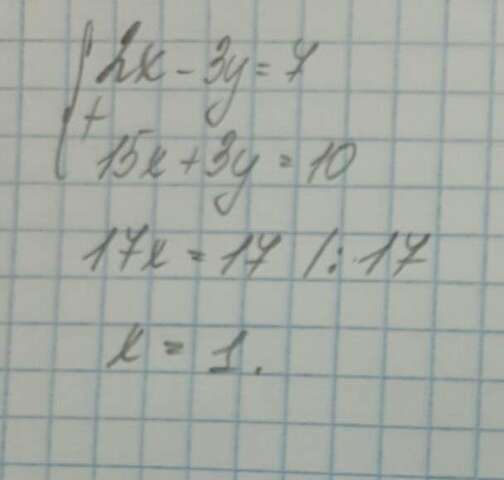 2x - 3y = 7
+
15x + 3y = 10
17x = 17 /: 17
x = 1.